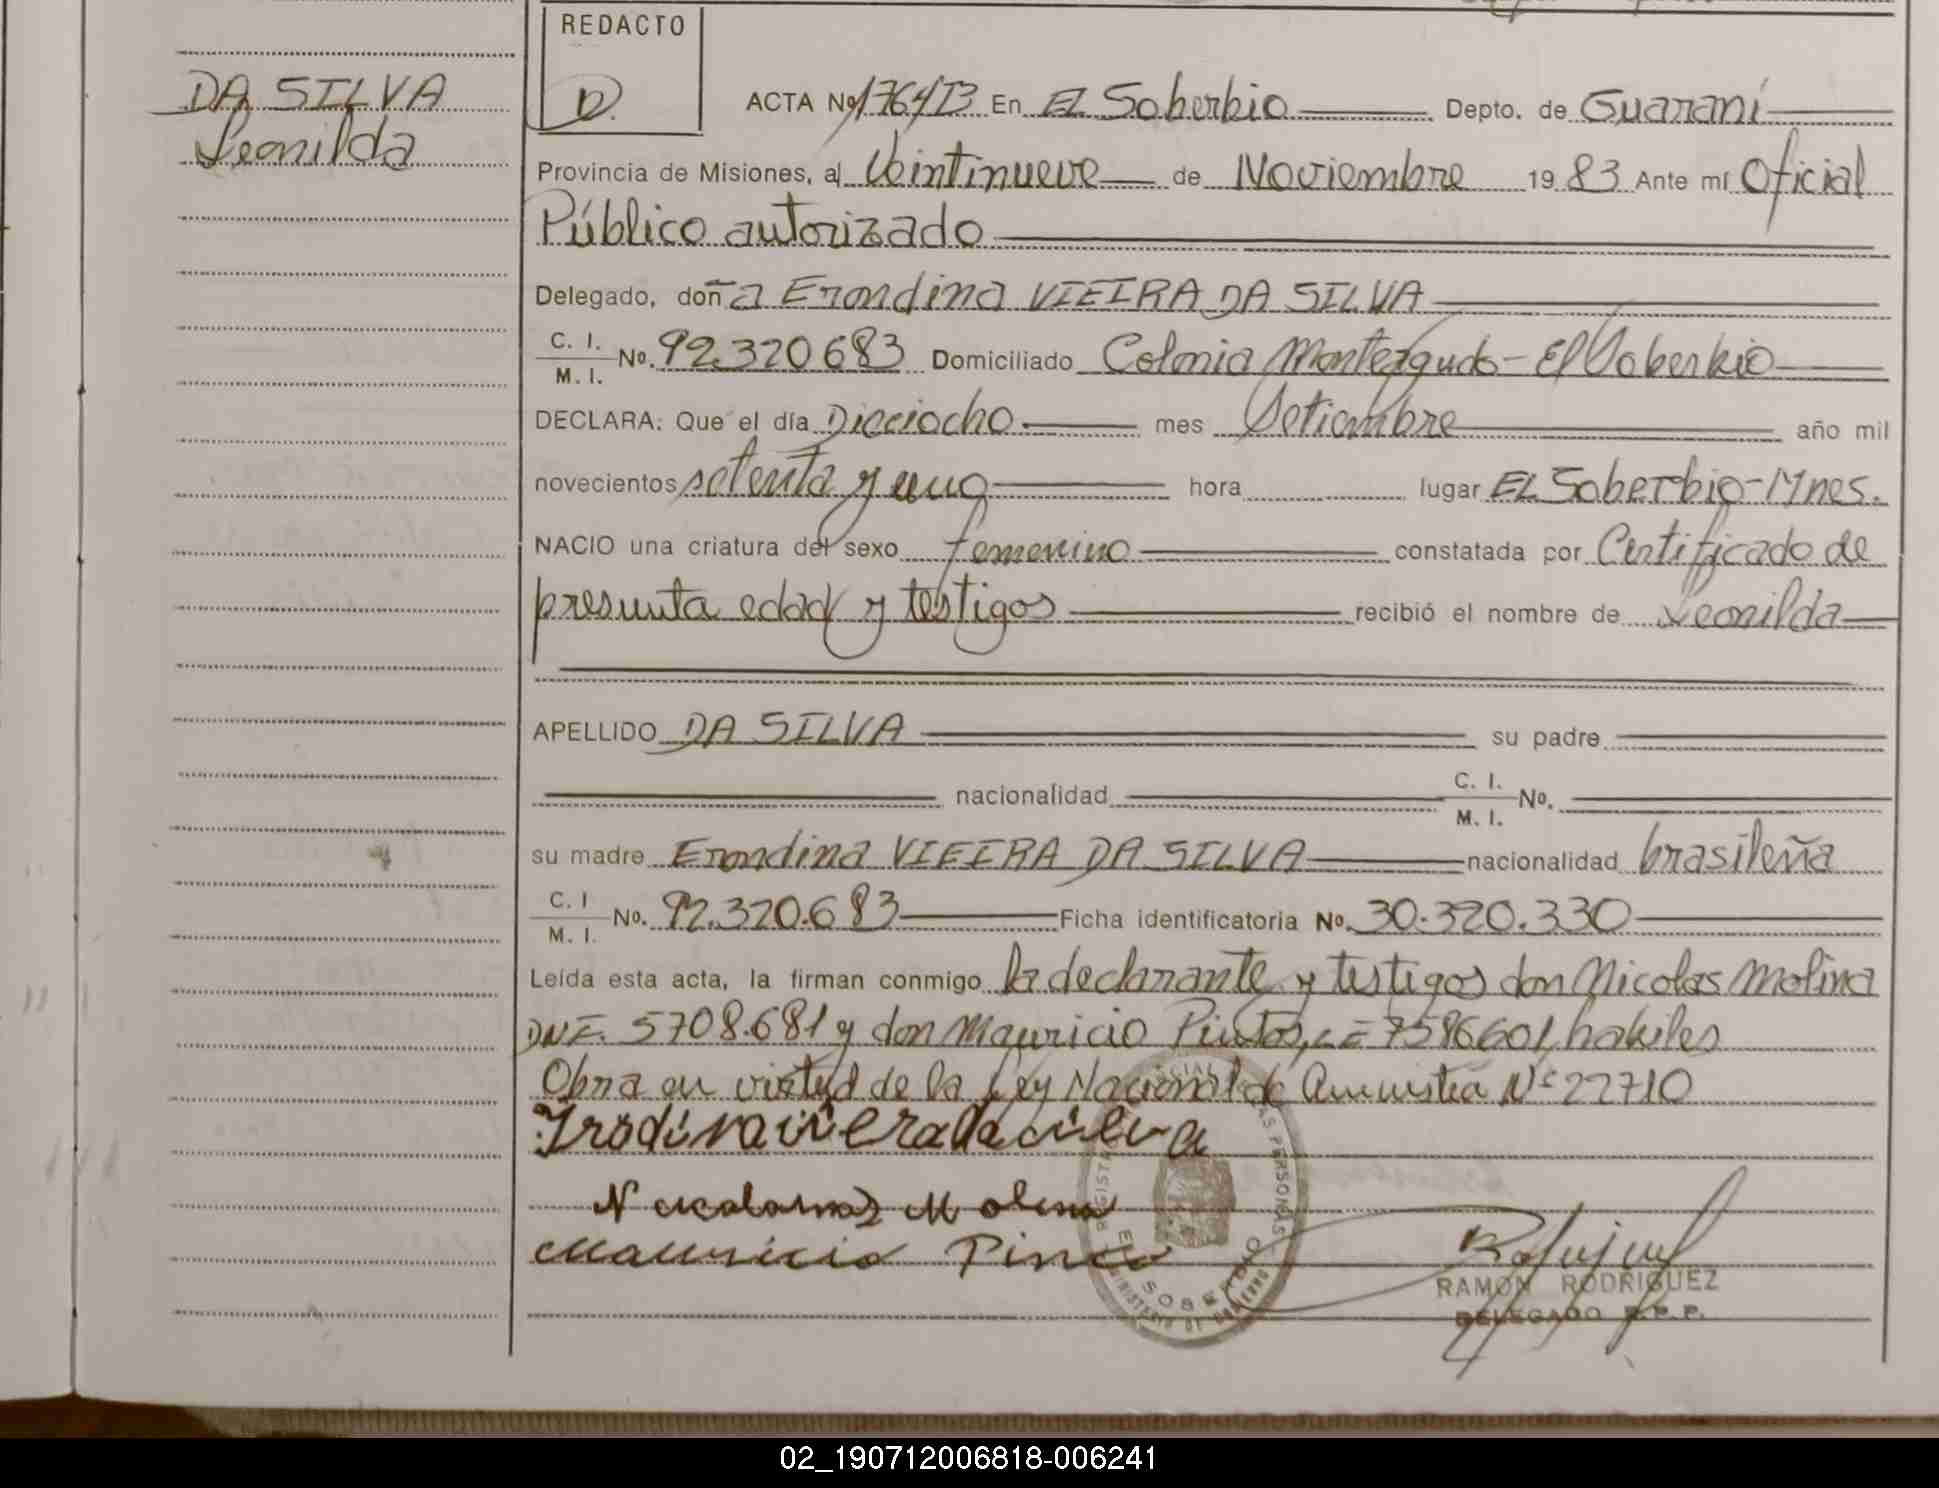 REDACTO
D.
DA SILVA
Leonilda
ACTA Nº 1764 T3 En EL Soberbio Depto. de Guaraní
Provincia de Misiones, al Veintinueve de Noviembre 19 83 Ante mí Oficial
Público autorizado
Delegado, doña Erondina VIEIRA DA SILVA
C. I. M. I. No. 92.320683 Domiciliado Colonia Monteagudo - El Soberbio
DECLARA: Que el día Dieciocho mes Setiembre año mil
novecientos setenta y uno hora lugar EL Soberbio-Mnes.
NACIO una criatura del sexo femenino constatada por Certificado de
presunta edad y testigos recibió el nombre de Leonilda
APELLIDO DA SILVA su padre
nacionalidad C. I. M. I. No.
su madre Erondina VIEIRA DA SILVA nacionalidad brasileña
C. I M. I. No. 92.320.683 Ficha identificatoria No. 30.320.330
Leída esta acta, la firman conmigo la declarante y testigos don Nicolas Molina
DNI. 5708.681 y don Mauricio Pintos, LE 7586601, habiles
Obra en virtud de la Ley Nacional de Amnistia Nº 22710
Molina
Mauricio
EL SOBERBIO
MINISTERIO DE GOBIERNO
RAMON RODRIGUEZ
DELEGADO R.P.P.
02_190712006818-006241